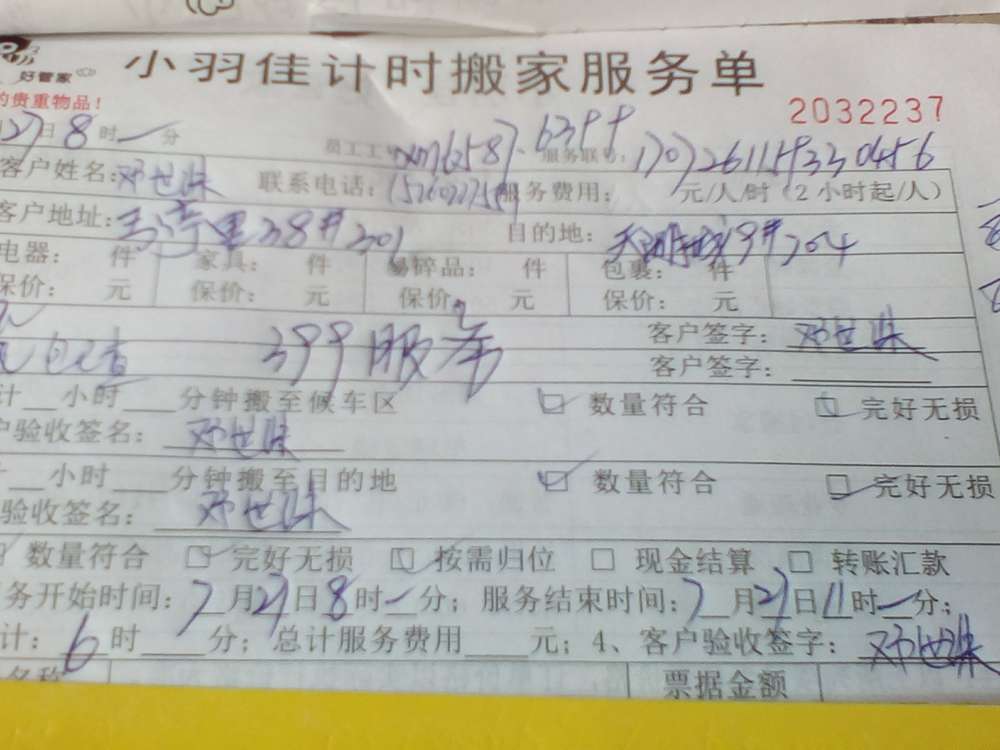 小羽佳计时搬家服务单
好管家
的贵重物品！
2032237
27日8时一分 员工工 6587. 6399 服务联号: 1707261159330456
客户姓名: 邓世洙 联系电话: 服务费用: 元/人/时（2小时起/人）
客户地址: 38#301 目的地: 9#204
电器: 件 家具: 件 易碎品: 件 包裹: 件
保价: 元 保价: 元 保价: 元 保价: 元
399服务 客户签字: 邓世洙
客户签字:
计__小时___分钟搬至候车区 数量符合 完好无损
户验收签名: 邓世洙
__小时___分钟搬至目的地 数量符合 完好无损
验收签名: 邓世洙
数量符合 完好无损 按需归位 现金结算 转账汇款
务开始时间: 7月27日8时一分; 服务结束时间: 7月27日11时一分;
计: 6时___分; 总计服务费用___元; 4、客户验收签字: 邓世洙
名称 票据金额